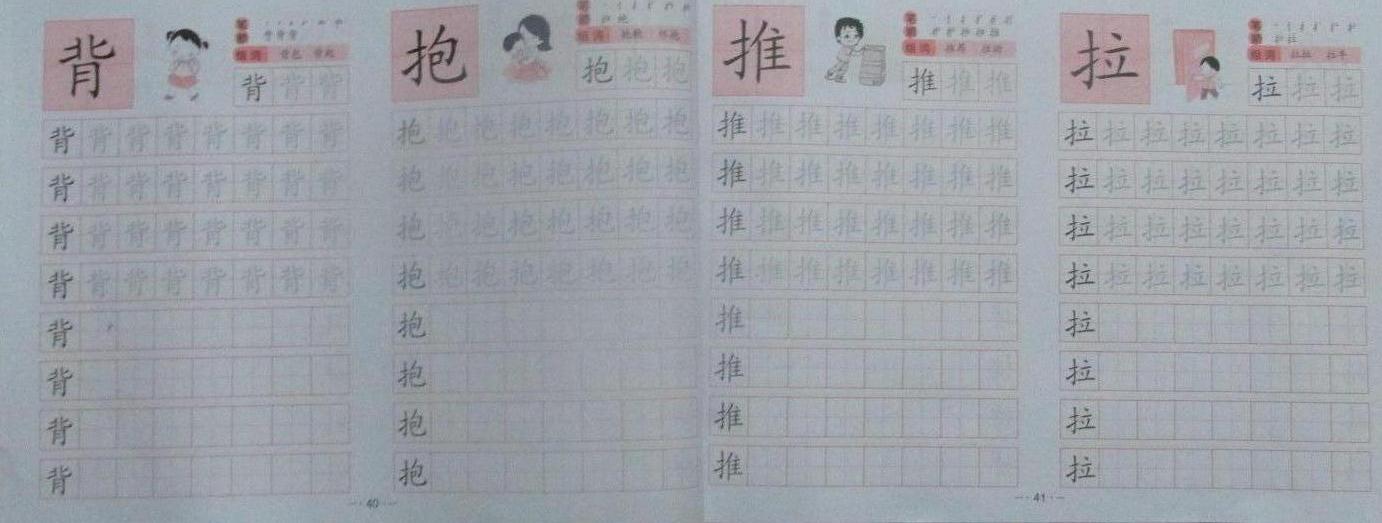 背
笔顺
组词 背包
背背背
背背背背背背背背
背背背背背背背背
背背背背背背背背
背背背背背背背背
背
背
背
背
抱
笔顺
组词 抱歉 怀抱
抱抱抱
抱抱抱抱抱抱抱抱
抱抱抱抱抱抱抱抱
抱抱抱抱抱抱抱抱
抱抱抱抱抱抱抱抱
抱
抱
抱
抱
40
推
笔顺
组词
推推推
推推推推推推推推
推推推推推推推推
推推推推推推推推
推推推推推推推推
推
推
推
推
拉
笔顺
组词 拉手
拉拉拉
拉拉拉拉拉拉拉拉
拉拉拉拉拉拉拉拉
拉拉拉拉拉拉拉拉
拉拉拉拉拉拉拉拉
拉
拉
拉
拉
41